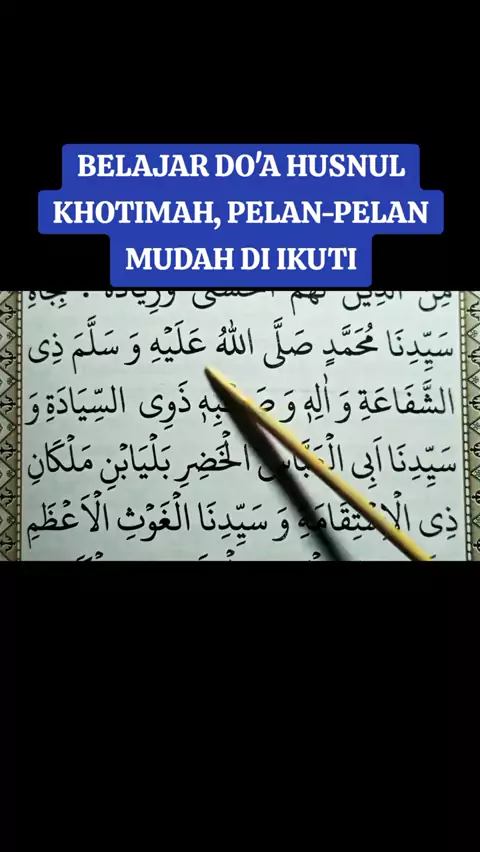 BELAJAR DO'A HUSNUL
KHOTIMAH, PELAN-PELAN
MUDAH DI IKUTI
مِنَ الَّذِيْنَ لَهُمُ الْحُسْنٰى وَزِيَادَةٌ . بِجَاهِ
سَيِّدِنَا مُحَمَّدٍ صَلَّى اللهُ عَلَيْهِ وَ سَلَّمَ ذِى
الشَّفَاعَةِ وَ اٰلِهٖ وَ صَحْبِهٖ ذَوِى السِّيَادَةِ وَ
سَيِّدِنَا اَبِى الْعَبَّاسِ الْخَضِرِ بَلْيَابْنِ مَلْكَانِ
ذِى الْاِسْتِقَامَةِ وَ سَيِّدِنَا الْغَوْثِ الْاَعْظَمِ